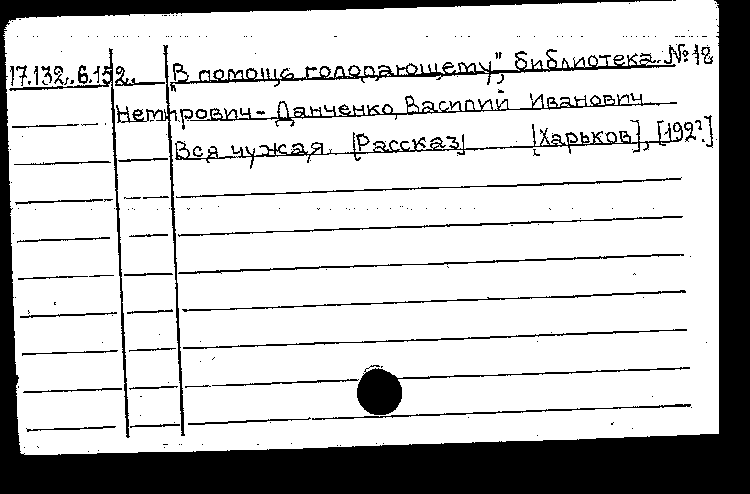 17.132.6.152. "В помощь голодающему", библиотека. № 18
Немирович-Данченко, Василий Иванович
Вся чужая. [Рассказ] [Харьков], [192?]